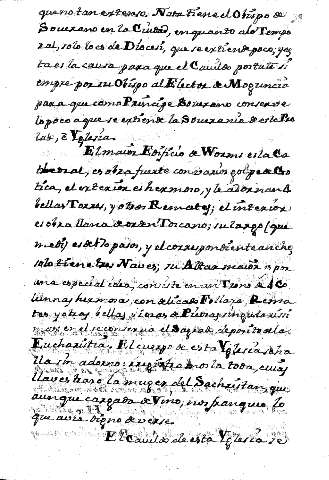 que no tan extenso. Nada tiene el Obispo de
Soverano en la Ciudad, en quanto a lo Tempo
ral, solo lo es de Diocesi, que se extiende poco; y es
ta es la causa para que el Cavildo postule si
empre por su Obispo al Elector de Moguncia
para que como Principe Soverano conserve
lo poco a que se extiende la Soverania de este Pre
lado, è Yglesia.
El maior Edificio de Worms es la Ca
thedral, es obra fuerte con varios golpes de Go
tica, el exterior es hermoso, y le adornan 4
bellas Torres, y otros Remates; el interior
es obra llana de orden Toscano; su largo (que
medi) es de 170 pasos, y el correspondiente anche,
solo tiene tres Naves; su Altar maior es por
una especial idea, consiste en un Trono de 4 Co
lumnas hermosas, con delicado Follage, Rema
tes, y otras bellas, y
en el se conserva el Sagrado deposito de la
Eucharistia. El cuerpo de esta Yglesia se ha
lla sin adorno: registramosla toda, cuias
llaves traxo la muger del Sachristan, que
aunque cargada de Vino, nos franqueo lo
que avia digno de verse.
El Cavildo de esta Yglesia se